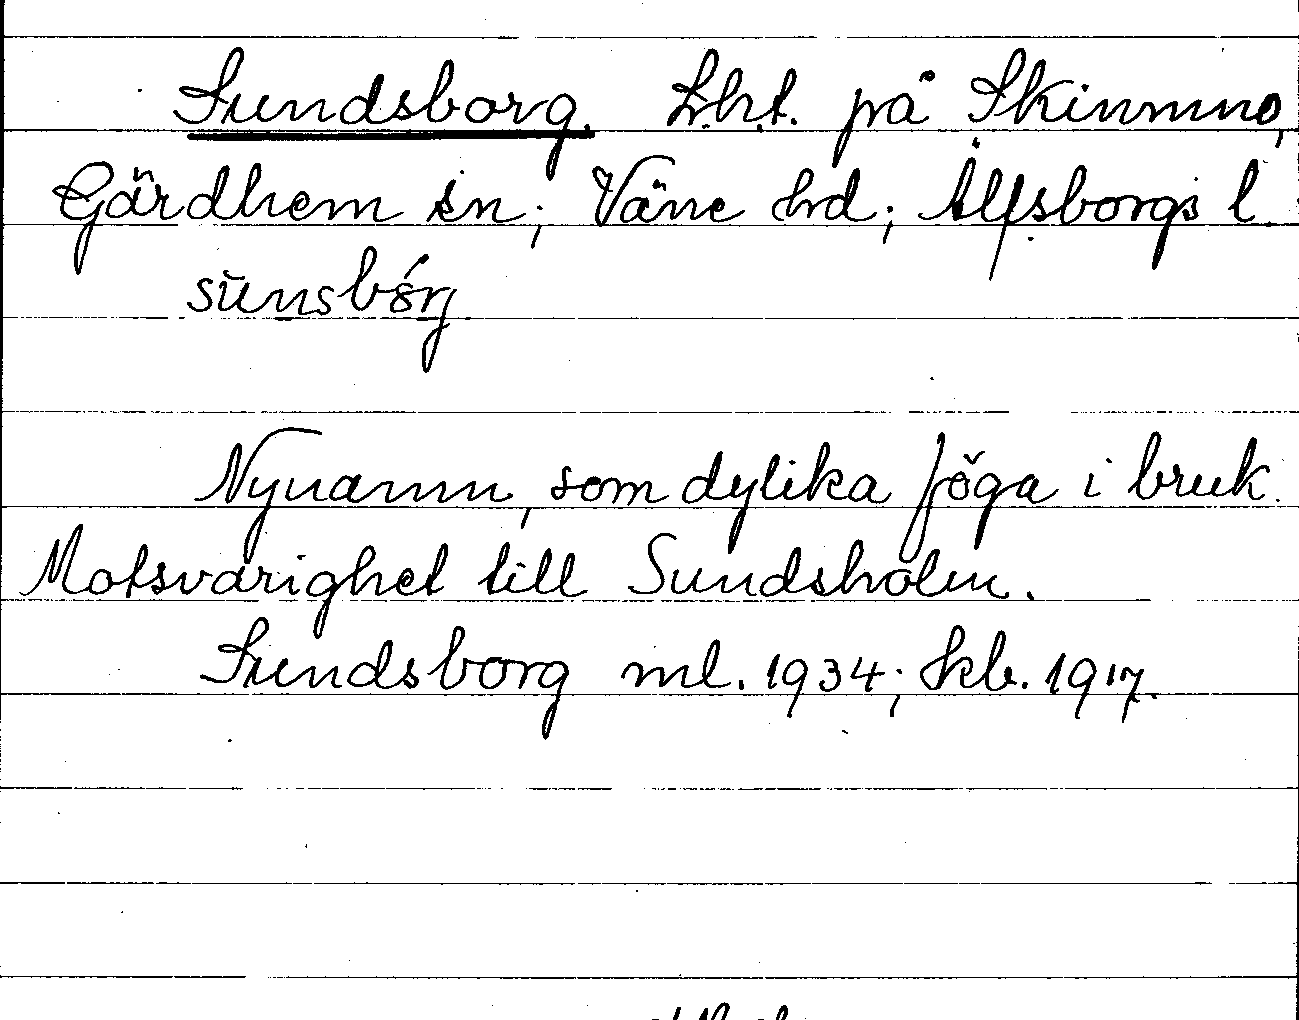 Sundsborg. Lht. på Skinnmo,
Gärdhem sn; Väne hd; Älfsborgs l.
sŭnsbórj
Nynamn, som dylika föga i bruk.
Motsvarighet till Sundsholm.
Sundsborg ml. 1934; Skb. 1917.